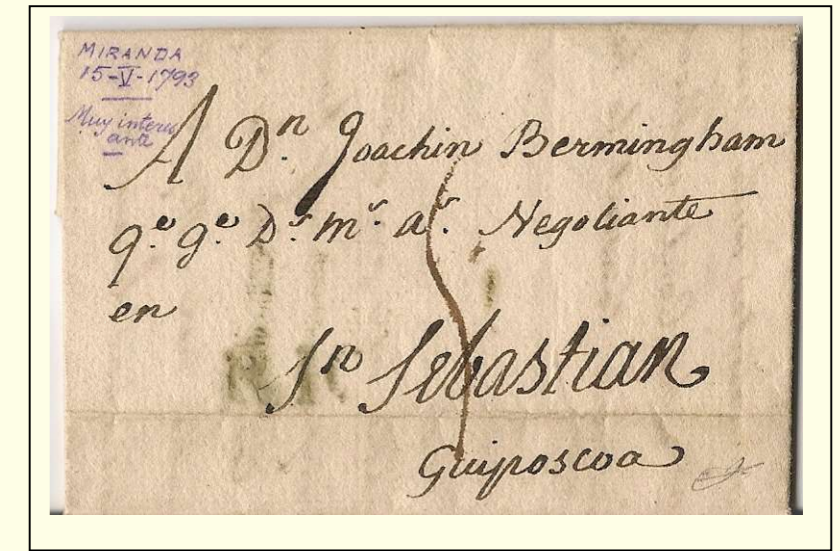 MIRANDA
15-V-1793
Muy interes
ante
A Dn. Joachin Bermingham
q.e g.e D.s m.s a.s Negotiante
en
Sn Sebastian
Guiposcoa